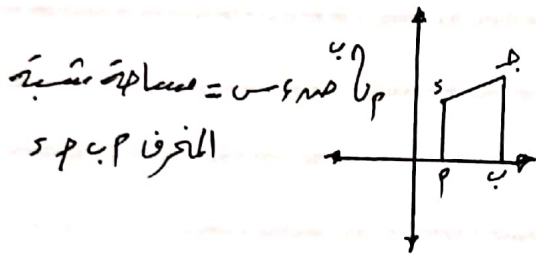 ∫ ص ء س = مساحة شبه
المنحرف م ب جـ د
ب
م
جـ
د
م
ب